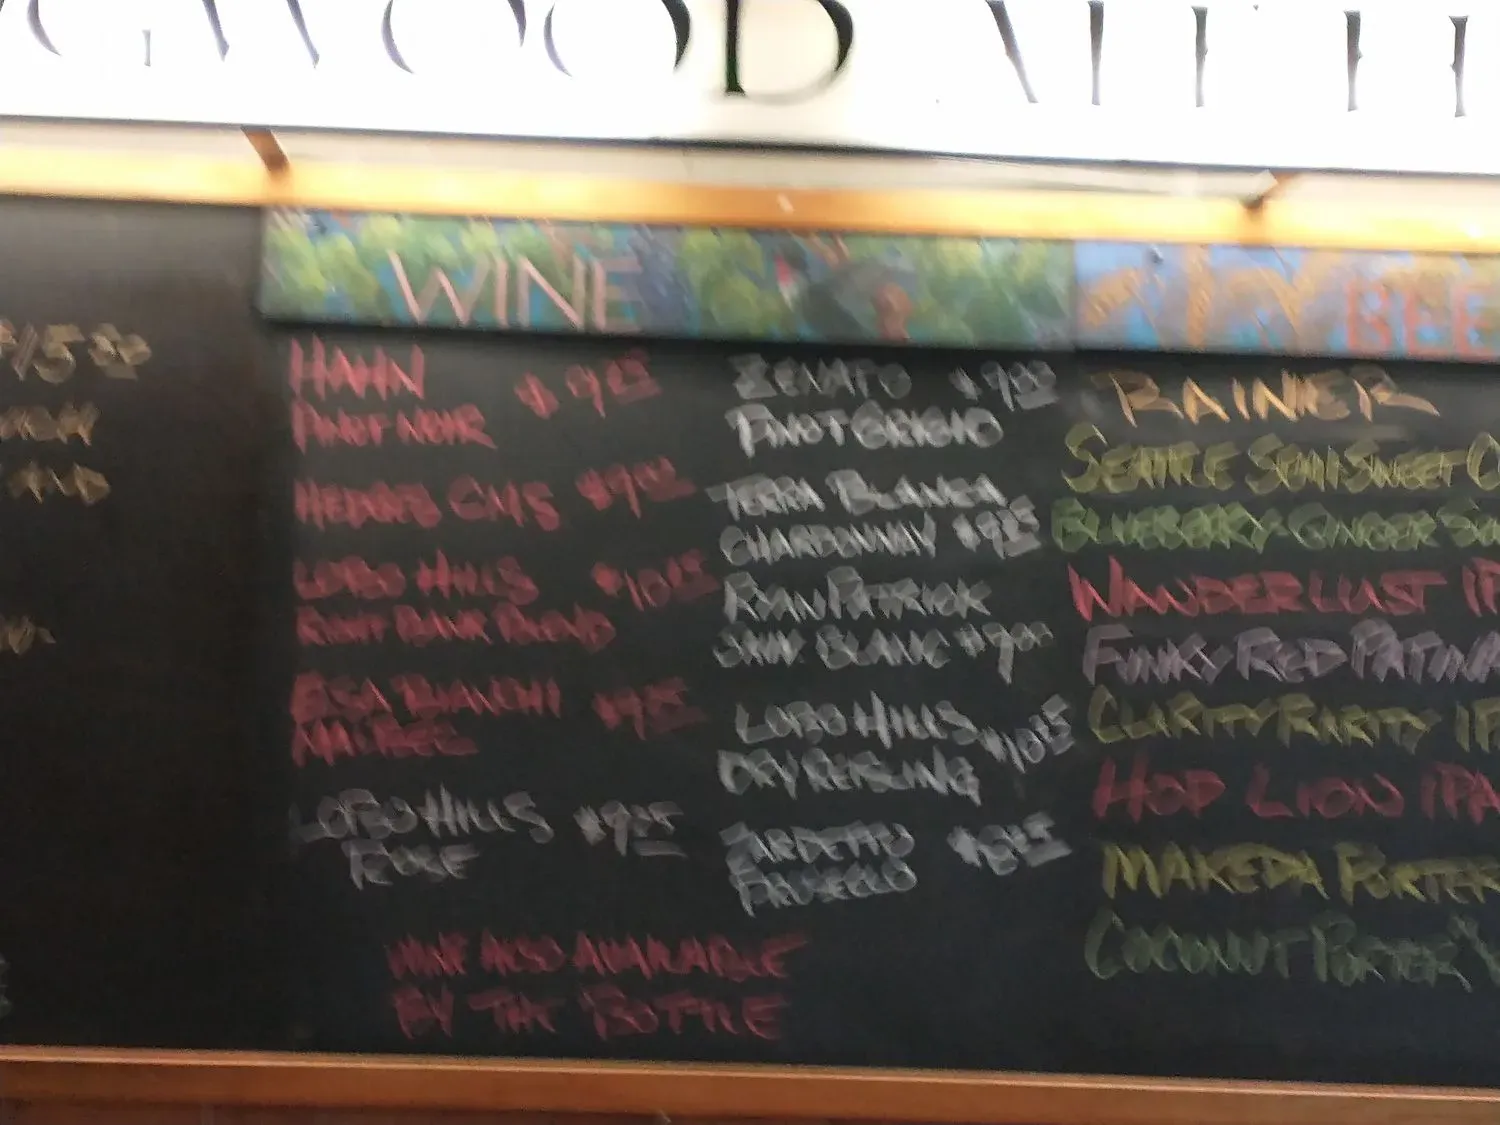 WOOD
WINE
BEE
$15.00
HAHN $9.25
PINOT NOIR
HEDGES CMS $9.00
LOBO HILLS $10.25
RIGHT BANK BLEND
BIANCHI $9.25
MALBEC
LOBO HILLS $9.25
ROSE
ZENATO $9.00
PINOT GRIGIO
TERRA BLANCA
CHARDONNAY $9.25
RYAN PATRICK
BLANC $9.00
LOBO HILLS $10.25
DRY REISLING
ZARDETTO $8.25
WINE ALSO AVAILABLE
BY THE BOTTLE
RAINIER
SEATTLE SEMI SWEET C
BLUEBERRY-GINGER
WANDERLUST IP
FUNKY RED PATINA
CLARITY RARITY IP
HOP LION IPA
MAKEDA PORTER
COCONUT PORTER